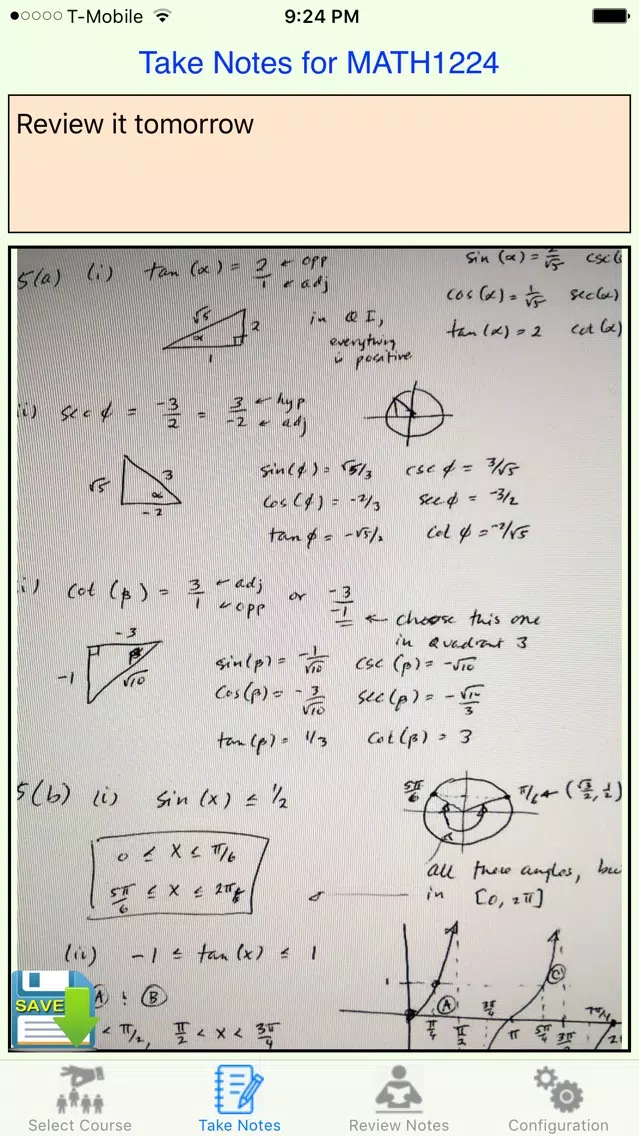 T-Mobile 9:24 PM
Take Notes for MATH1224
Review it tomorrow
5(a) (i) tan (α) = 2/1 ← opp ← adj
sin (α) = 2/√5 csc(
cos (α) = 1/√5 sec(α)
tan (α) = 2 cot (α)
√5 2 α 1
in Q I,
everything
is positive
ii) sec ϕ = -3/2 = 3/-2 ← hyp ← adj
√5 3 α -2
sin(ϕ) = √5/3 csc ϕ = 3/√5
cos(ϕ) = -2/3 sec ϕ = -3/2
tan ϕ = -√5/2 cot ϕ = -2/√5
i) cot (β) = 3/1 ← adj ← opp or -3/-1 ← choose this one
in Quadrant 3
-3 β -1 √10
sin(β) = -1/√10 csc (β) = -√10
cos(β) = -3/√10 sec(β) = -√10/3
tan(β) = 1/3 cot(β) = 3
5(b) (i) sin (x) ≤ 1/2
5π/6 π/6 ← (√3/2, 1/2)
0 ≤ x ≤ π/6
5π/6 ≤ x ≤ 2π
all these angles, bu
in [0, 2π]
(ii) -1 ≤ tan (x) ≤ 1
A : B
< π/2, π/2 < x < 3π/4
1 A C
π/4 π/2 3π/4 π 5π/4 3π/2 7π/4 2
SAVE
Select Course Take Notes Review Notes Configuration